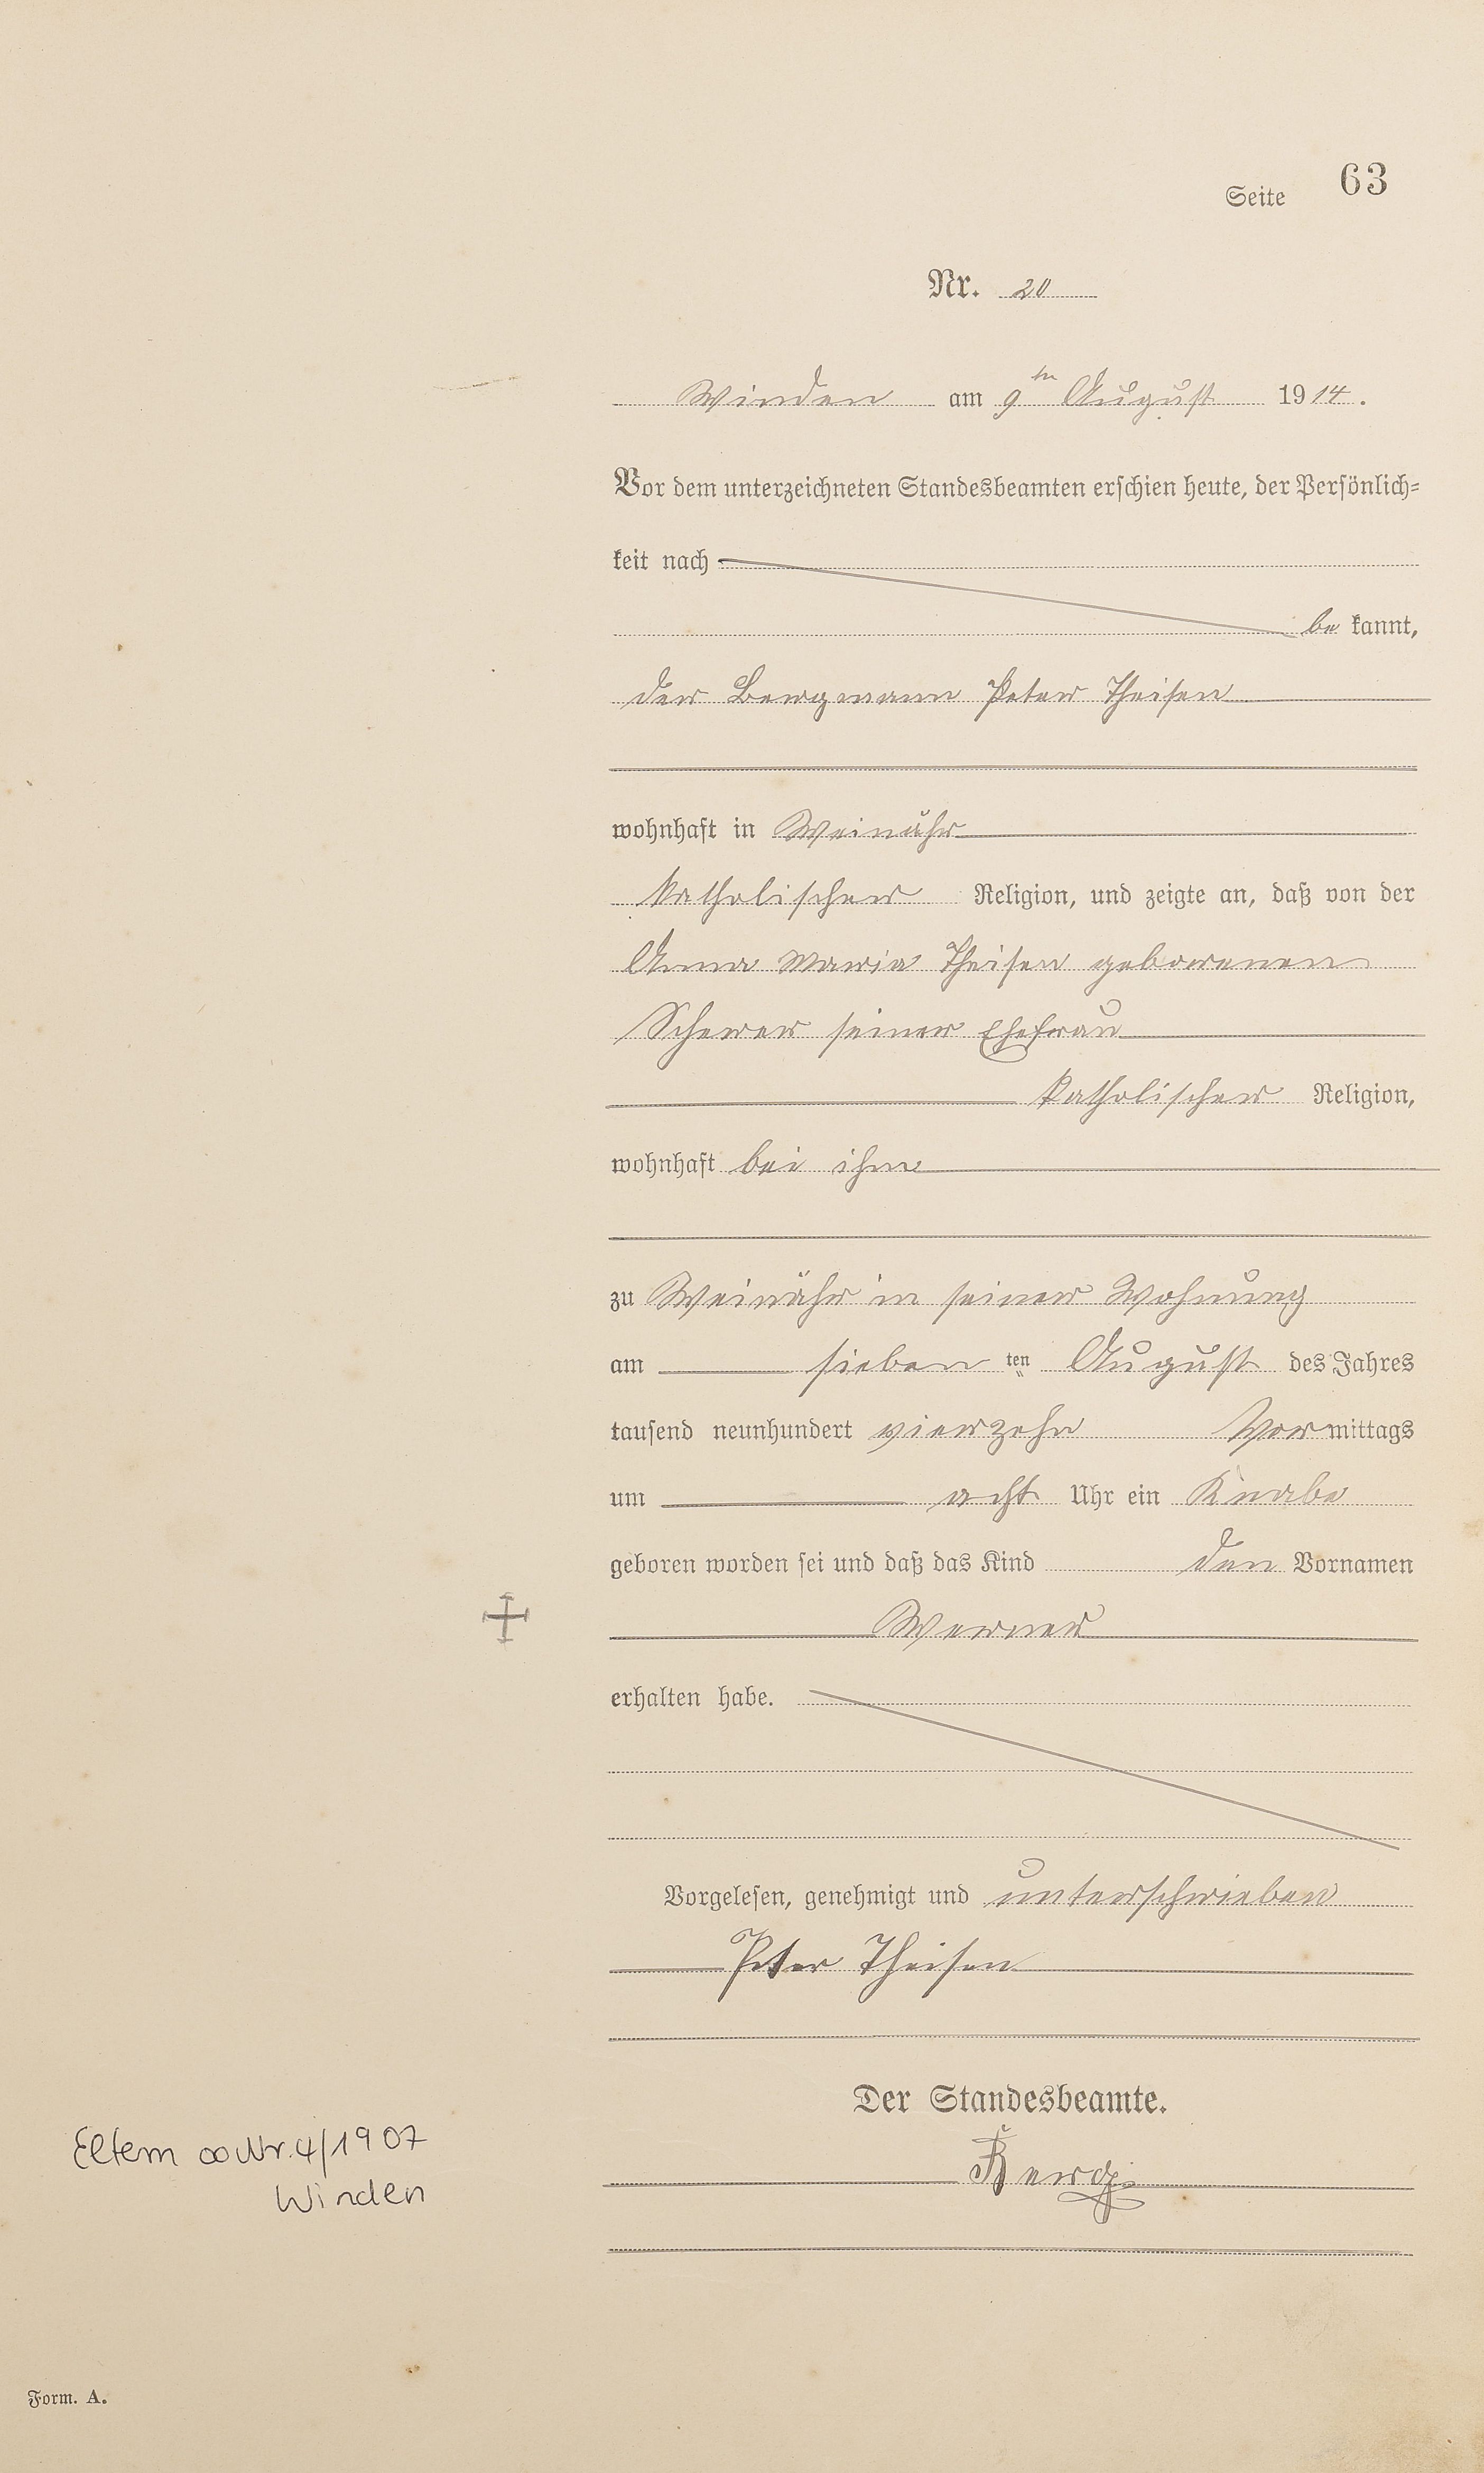 Seite 63
Nr. 20
Winden am 9ten August 1914.
Vor dem unterzeichneten Standesbeamten erschien heute, der Persönlich-
keit nach
be kannt,
der Bergmann Peter Theisen
wohnhaft in Weinähr
katholischer Religion, und zeigte an, daß von der
Anna Maria Theisen geborenen
Scherer seiner Ehefrau
katholischer Religion,
wohnhaft bei ihm
zu Weinähr in seiner Wohnung
am sieben ten August des Jahres
tausend neunhundert vierzehn Vormittags
um acht Uhr ein Knabe
geboren worden sei und daß das Kind den Vornamen
Werner
erhalten habe.
Vorgelesen, genehmigt und unterschrieben
Peter Theisen
Der Standesbeamte.
Eltern ∞ Nr. 4/1907
Winden
Form. A.